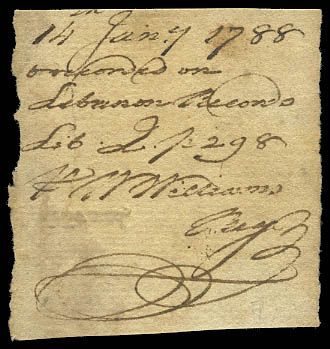 14th Jany 1788
recorded on
Lebanon Records
Lib p 298
Pr W Williams
Regr